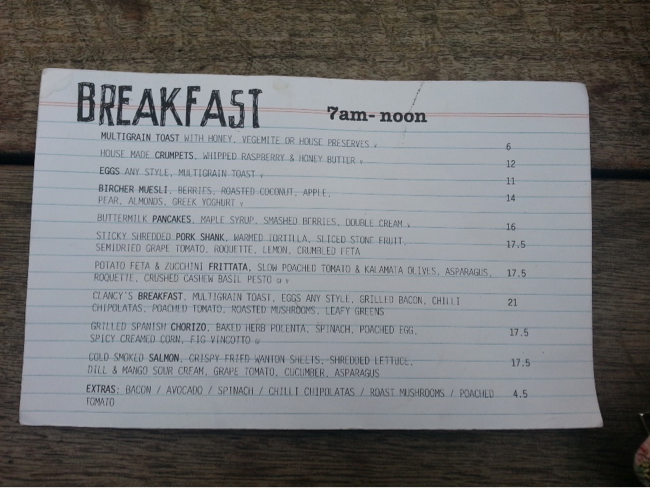 BREAKFAST 7am- noon
MULTIGRAIN TOAST WITH HONEY, VEGEMITE OR HOUSE PRESERVES v 6
HOUSE MADE CRUMPETS, WHIPPED RASPBERRY & HONEY BUTTER v 12
EGGS ANY STYLE, MULTIGRAIN TOAST v 11
BIRCHER MUESLI, BERRIES, ROASTED COCONUT, APPLE, 14
PEAR, ALMONDS, GREEK YOGHURT v
BUTTERMILK PANCAKES, MAPLE SYRUP, SMASHED BERRIES, DOUBLE CREAM v 16
STICKY SHREDDED PORK SHANK, WARMED TORTILLA, SLICED STONE FRUIT, 17.5
SEMIDRIED GRAPE TOMATO, ROQUETTE, LEMON, CRUMBLED FETA
POTATO FETA & ZUCCHINI FRITTATA, SLOW POACHED TOMATO & KALAMATA OLIVES, ASPARAGUS, 17.5
ROQUETTE, CRUSHED CASHEW BASIL PESTO
CLANCY'S BREAKFAST, MULTIGRAIN TOAST, EGGS ANY STYLE, GRILLED BACON, CHILLI 21
CHIPOLATAS, POACHED TOMATO, ROASTED MUSHROOMS, LEAFY GREENS
GRILLED SPANISH CHORIZO, BAKED HERB POLENTA, SPINACH, POACHED EGG, 17.5
SPICY CREAMED CORN, FIG VINCOTTO
COLD SMOKED SALMON, CRISPY FRIED WANTON SHEETS, SHREDDED LETTUCE, 17.5
DILL & MANGO SOUR CREAM, GRAPE TOMATO, CUCUMBER, ASPARAGUS
EXTRAS: BACON / AVOCADO / SPINACH / CHILLI CHIPOLATAS / ROAST MUSHROOMS / POACHED 4.5
TOMATO